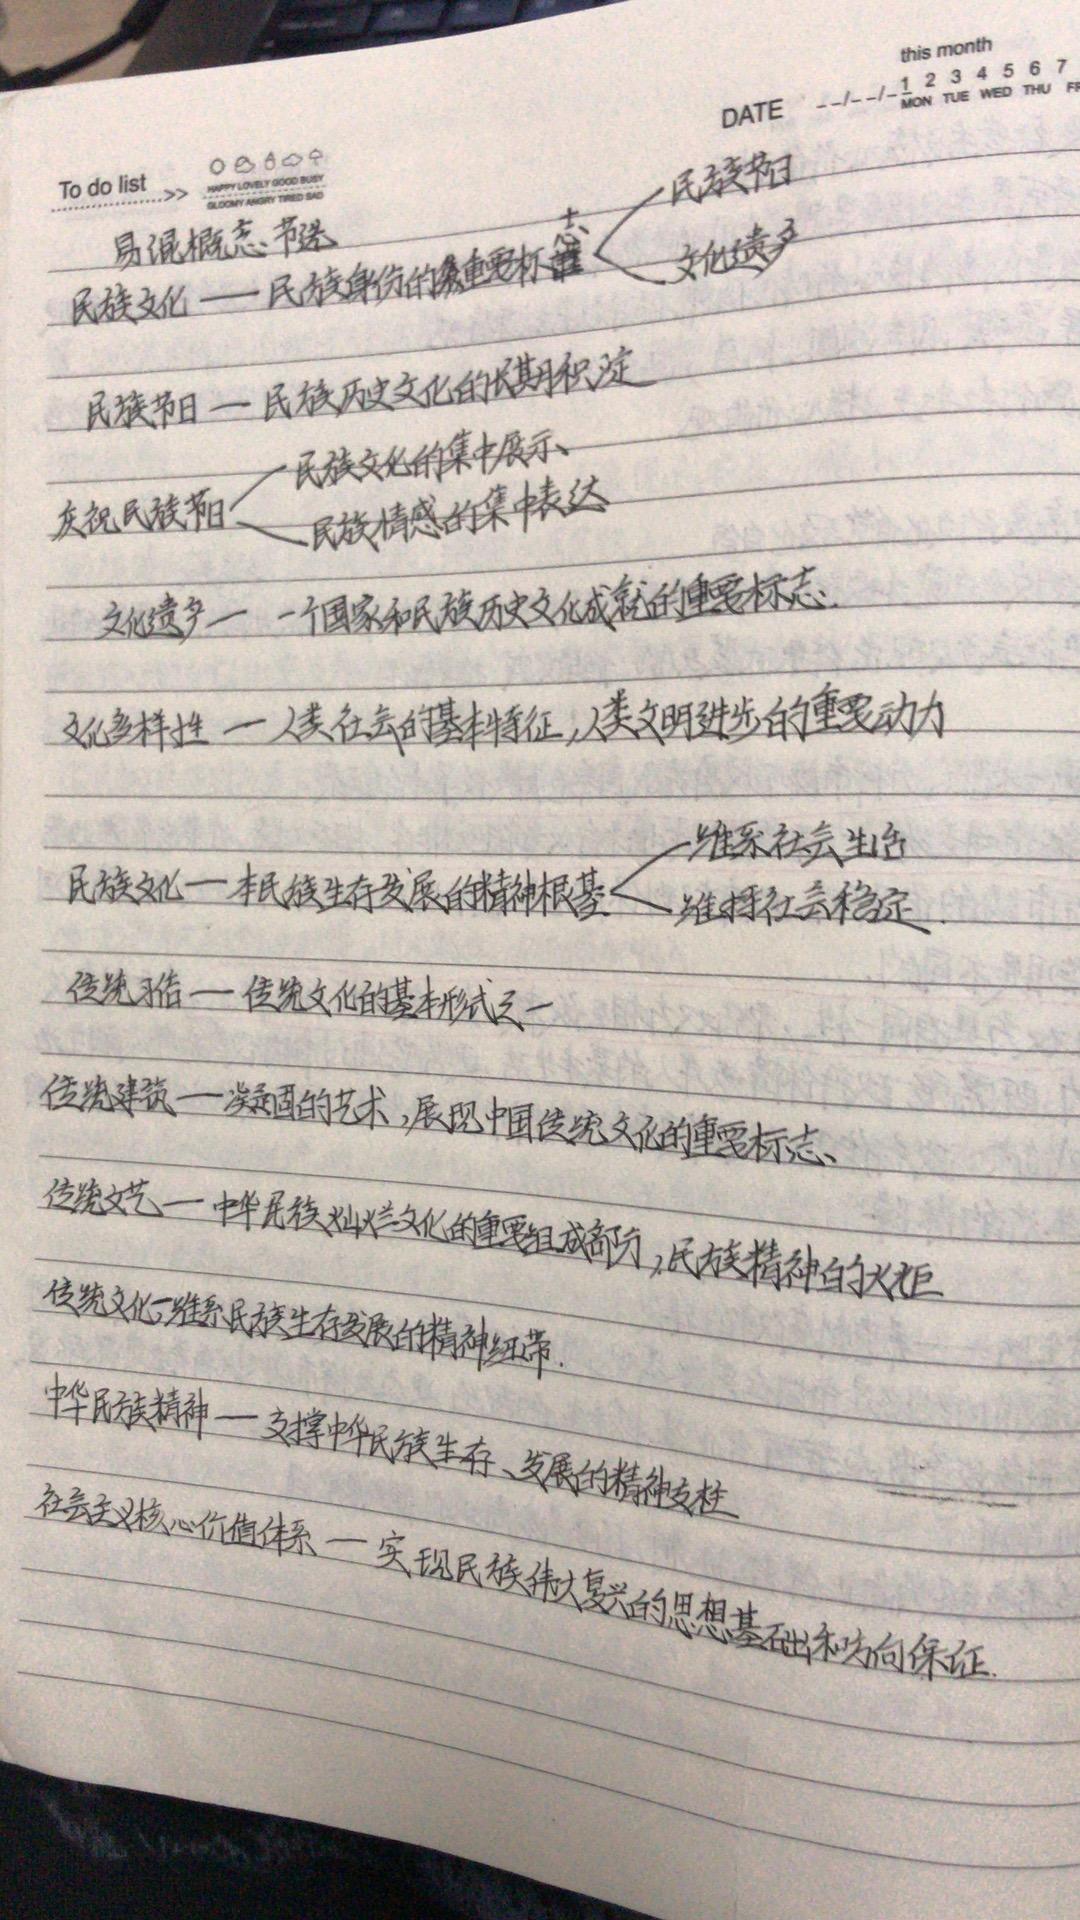 this month
DATE --/--/-- 1 2 3 4 5 6 7
MON TUE WED THU FR
To do list >>
HAPPY LOVELY GOOD BUSY
GLOOMY ANGRY TIRED SAD
易混概念节选
民族节日
民族文化——民族身份的重要标志
文化遗产
民族节日——民族历史文化的长期积淀
民族文化的集中展示、
庆祝民族节日
民族情感的集中表达
文化遗产——一个国家和民族历史文化成就的重要标志.
文化多样性——人类社会的基本特征,人类文明进步的重要动力
维系社会生活
民族文化——本民族生存发展的精神根基
维持社会稳定.
传统习俗——传统文化的基本形式之一
传统建筑——凝固的艺术,展现中国传统文化的重要标志、
传统文艺——中华民族灿烂文化的重要组成部分,民族精神的火炬
传统文化—维系民族生存发展的精神纽带.
中华民族精神——支撑中华民族生存、发展的精神支柱
社会主义核心价值体系——实现民族伟大复兴的思想基础和方向保证.